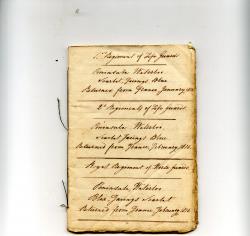 1st Regiment of Life Guards
Peninsula Waterloo
Scarlet Facings Blue
Returned from France January 1816
2d Regiments of Life Guards
Peninsula Waterloo
Scarlet Facings Blue
Returned from France February 1816
Royal Regiment of Horse Guards
Peninsula Waterloo
Blue Facings Scarlet
Returned from France February 1816